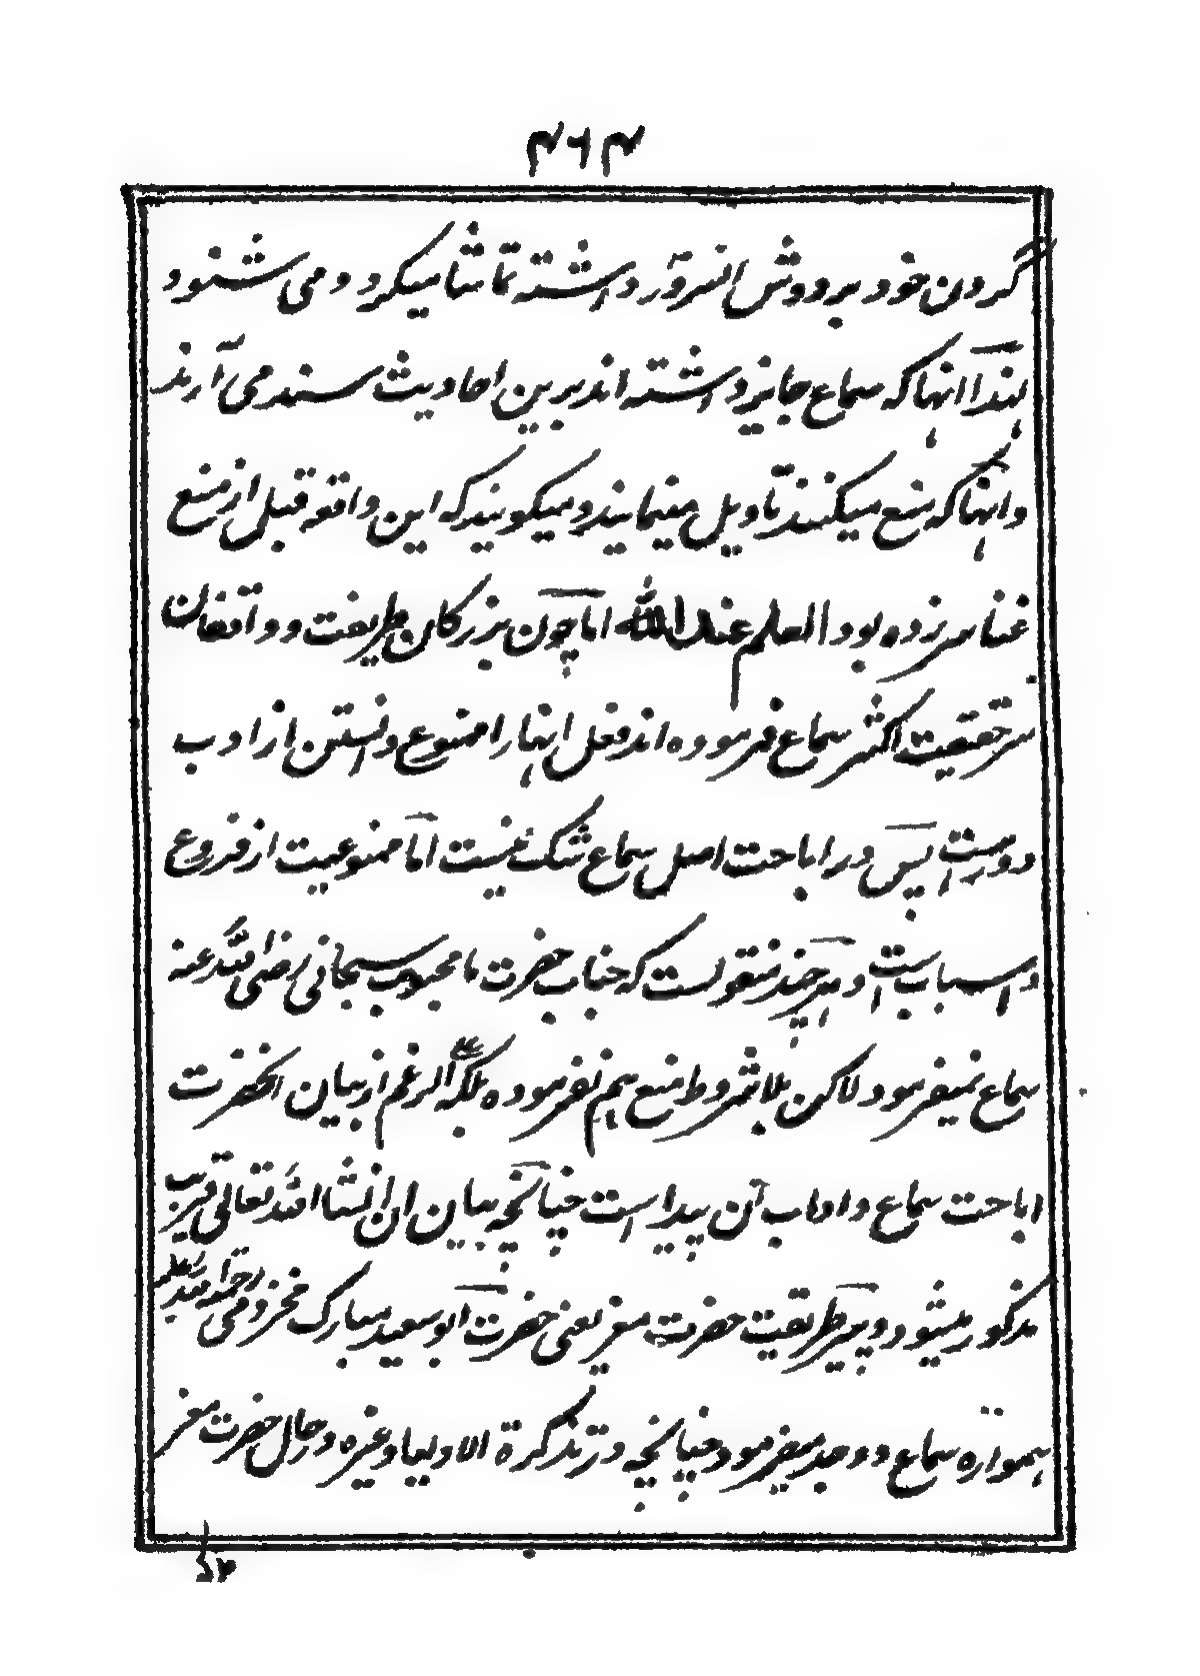 ۴۶۴
گردن خود بر دوش انسرور داشته تماشا میکرد و می شنود
لهذا انها که سماع جایز داشته اند برین احادیث سند می آرند
و انها که منع میکنند تاویل مینمایند و میکویند که این واقعه قبل از منع
غنا سر زده بود العلم عند الله اما چون بزرکان طریقت و واقفان
سر حقیقت اکثر سماع فرموده اند فعل اینها را ممنوع دانستن از ادب
دورست پس در اباحت اصل سماع شک نیست اما ممنوعیت از فروع
و اسبابست و هر چند منقولست که جناب حضرت ما محبوب سبحانی رضی الله عنه
سماع نمیفرمود لاکن بلا شروط منع هم نفرموده بلکه الرغم از بیان انحضرت
اباحت سماع و اداب آن پیدا است چنانچه بیان ان انشا الله تعالی قریب
مذکور میشود و پیر طریقت حضرت میر یعنی حضرت ابو سعید مبارک مخزومی رحمة الله علیه
همواره سماع و وجد میفرمود چنانچه در تذکرة الاولیا و غیره در حال حضرت میر